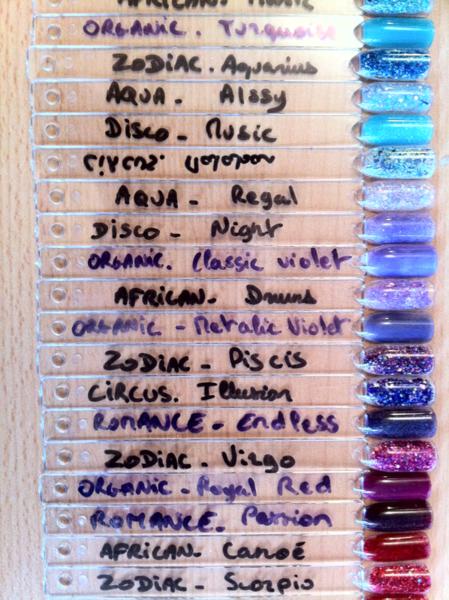 AFRICAN.
ORGANIC. Turquoise
ZODiAC. Aquarius
AQUA - Alssy
Disco - Music
AQUA - Regal
Disco - Night
ORGANIC. Classic violet
AFRICAN. Drums
ORGANIC - Metalic Violet
ZODIAC - Piscis
CiRCUS. Illusion
ROMANCE - Endless
ZODiAC. Virgo
ORGANIC - Royal Red
ROMANCE. Passion
AFRICAN - Canoé
ZODIAC - Scorpio